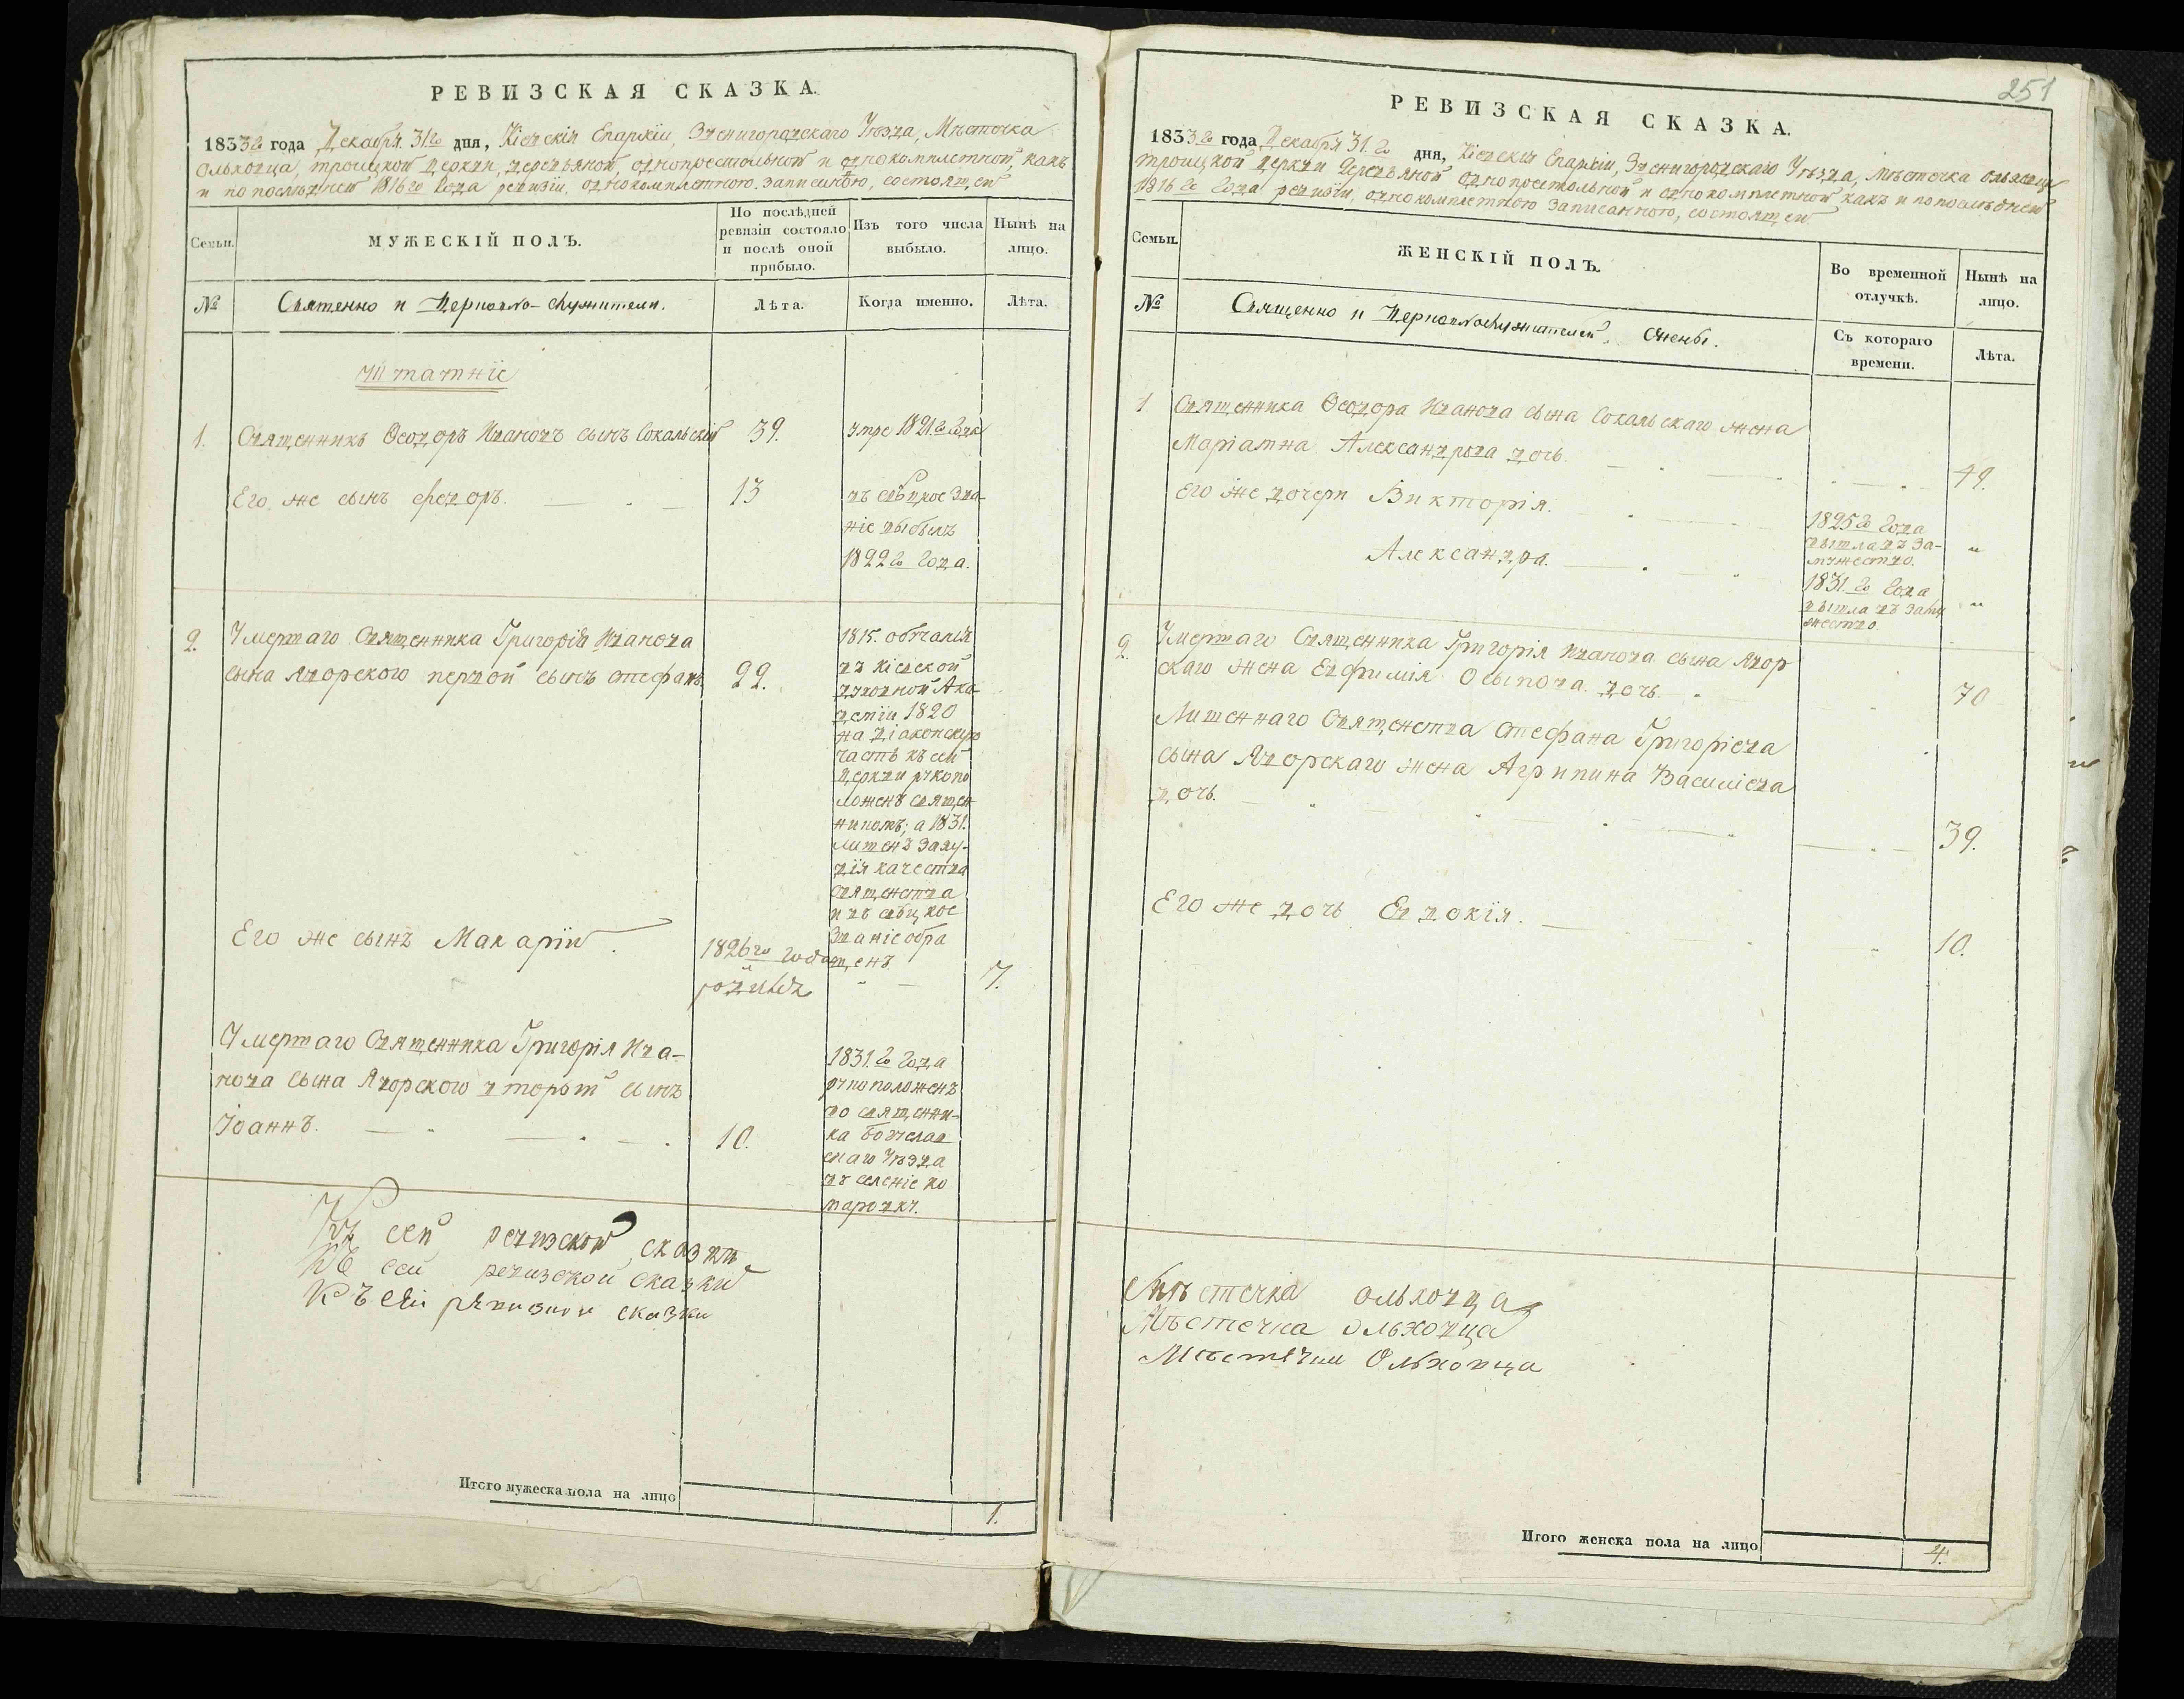 РЕВИЗСКАЯ СКАЗКА.
1833го года Декабря 31го дня, Кіевскія Епархіи, Звенигородскаго Уѣзда, Мѣстечка
Ольховца, троицкой церкви, деревяной, однопрестольной и однокомплетной, какъ
и по послѣдней 1816го Года ревизіи, однокомплетного записаного, состоящей
Семьи.
МУЖЕСКІЙ ПОЛЪ.
По послѣдней ревизіи состояло и послѣ оной прибыло.
Изъ того числа выбыло.
Нынѣ на лицо.
№
Священно и Церковно-служители.
Лѣта.
Когда именно.
Лѣта.
Штатніе
1. Священникъ Ѳеодоръ Ивановъ сынъ Сокальскій 39. умре 1821го Года
Его же сынъ Федоръ. 13 въ свѣцкое зва-
ніе выбылъ
1822го Года.
2. Умершаго Священника Григорія Иванова
сына Яворского первой сынъ Стефанъ 22.
1815. обучался
въ Кіевской
духовной Ака-
деміи 1820
на діаконскую
часть къ сей
церкви рукопо
ложенъ священ
никомъ; а 1831.
лишенъ
качества
священства
и въ свѣцкое
званіе обра
щенъ.
Его же сынъ Макарій. 1826го года
родился 7.
Умершаго Священника Григорія Ива-
нова сына Яворского второй сынъ
Іоаннъ. 10.
1831.го Года
рукоположенъ
во священни-
ка
скаго Уѣзда
въ селеніе Ко
маровку.
Къ сей ревизской сказки
Къ сей ревизской сказки
Къ сей ревизкои сказки
Итого мужеска пола на лицо 1.
251
РЕВИЗСКАЯ СКАЗКА.
1833го года Декабря 31.го дня, Кіевскія Епархіи, Звенигородскаго Уѣзда, Мѣстечка Ольховца
троицкой церкви деревяной однопрестольной и однокомплетной какъ и по послѣдней
1816го Года ревизіи, однокомплетного записанного, состоящей
Семьи.
ЖЕНСКІЙ ПОЛЪ.
Во временной отлучкѣ.
Нынѣ на лицо.
№
Священно и Церковнослужителей Жены.
Съ котораго времени.
Лѣта.
1 Священника Ѳеодора Иванова сына Сокальскаго жена
Маріанна Александрова дочь. 49.
Его же дочери Викторія. 1825го Года
вышла въ за-
мужество. "
Александра. 1831.го Года
вышла въ заму
жество. "
2. Умершаго Священника Григорія Иванова сына Явор
скаго жена Евфимія Осыпова дочь. 70
Лишеннаго Священства Стефана Григоріева
сына Яворскаго жена Агрипина Василіева
дочь. 39.
Его же дочь Евдокія. 10.
Мѣстечка Ольховца
Мѣстечка Ольховца
Мѣстечки Ольховца
Итого женска пола на лицо 4.